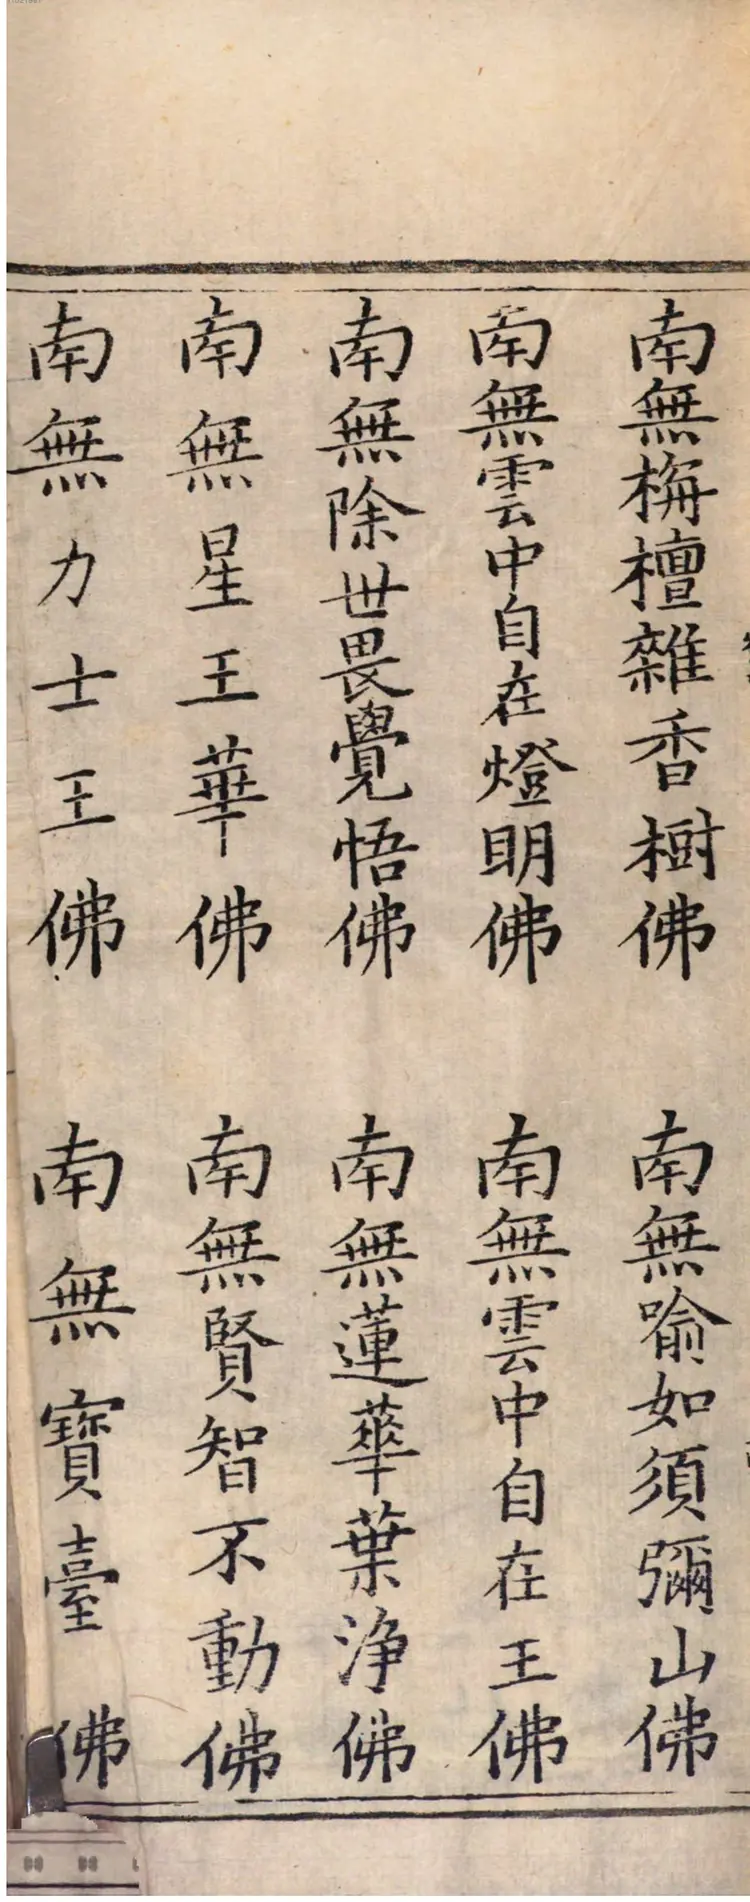 南無栴檀雜香樹佛 南無喻如須彌山佛
南無雲中自在燈明佛 南無雲中自在王佛
南無除世畏覺悟佛 南無蓮華葉淨佛
南無星王華佛 南無賢智不動佛
南無力士王佛 南無寶臺佛